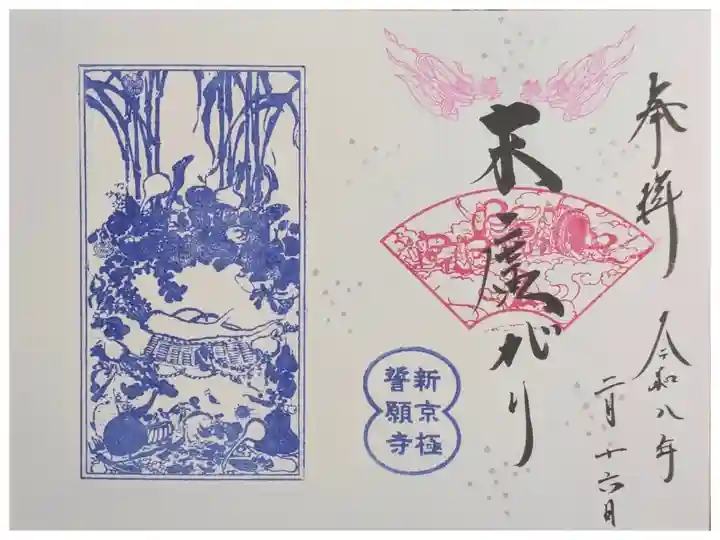 奉拝
令和八年
二月十六日
末廣がり
新京極
誓願寺